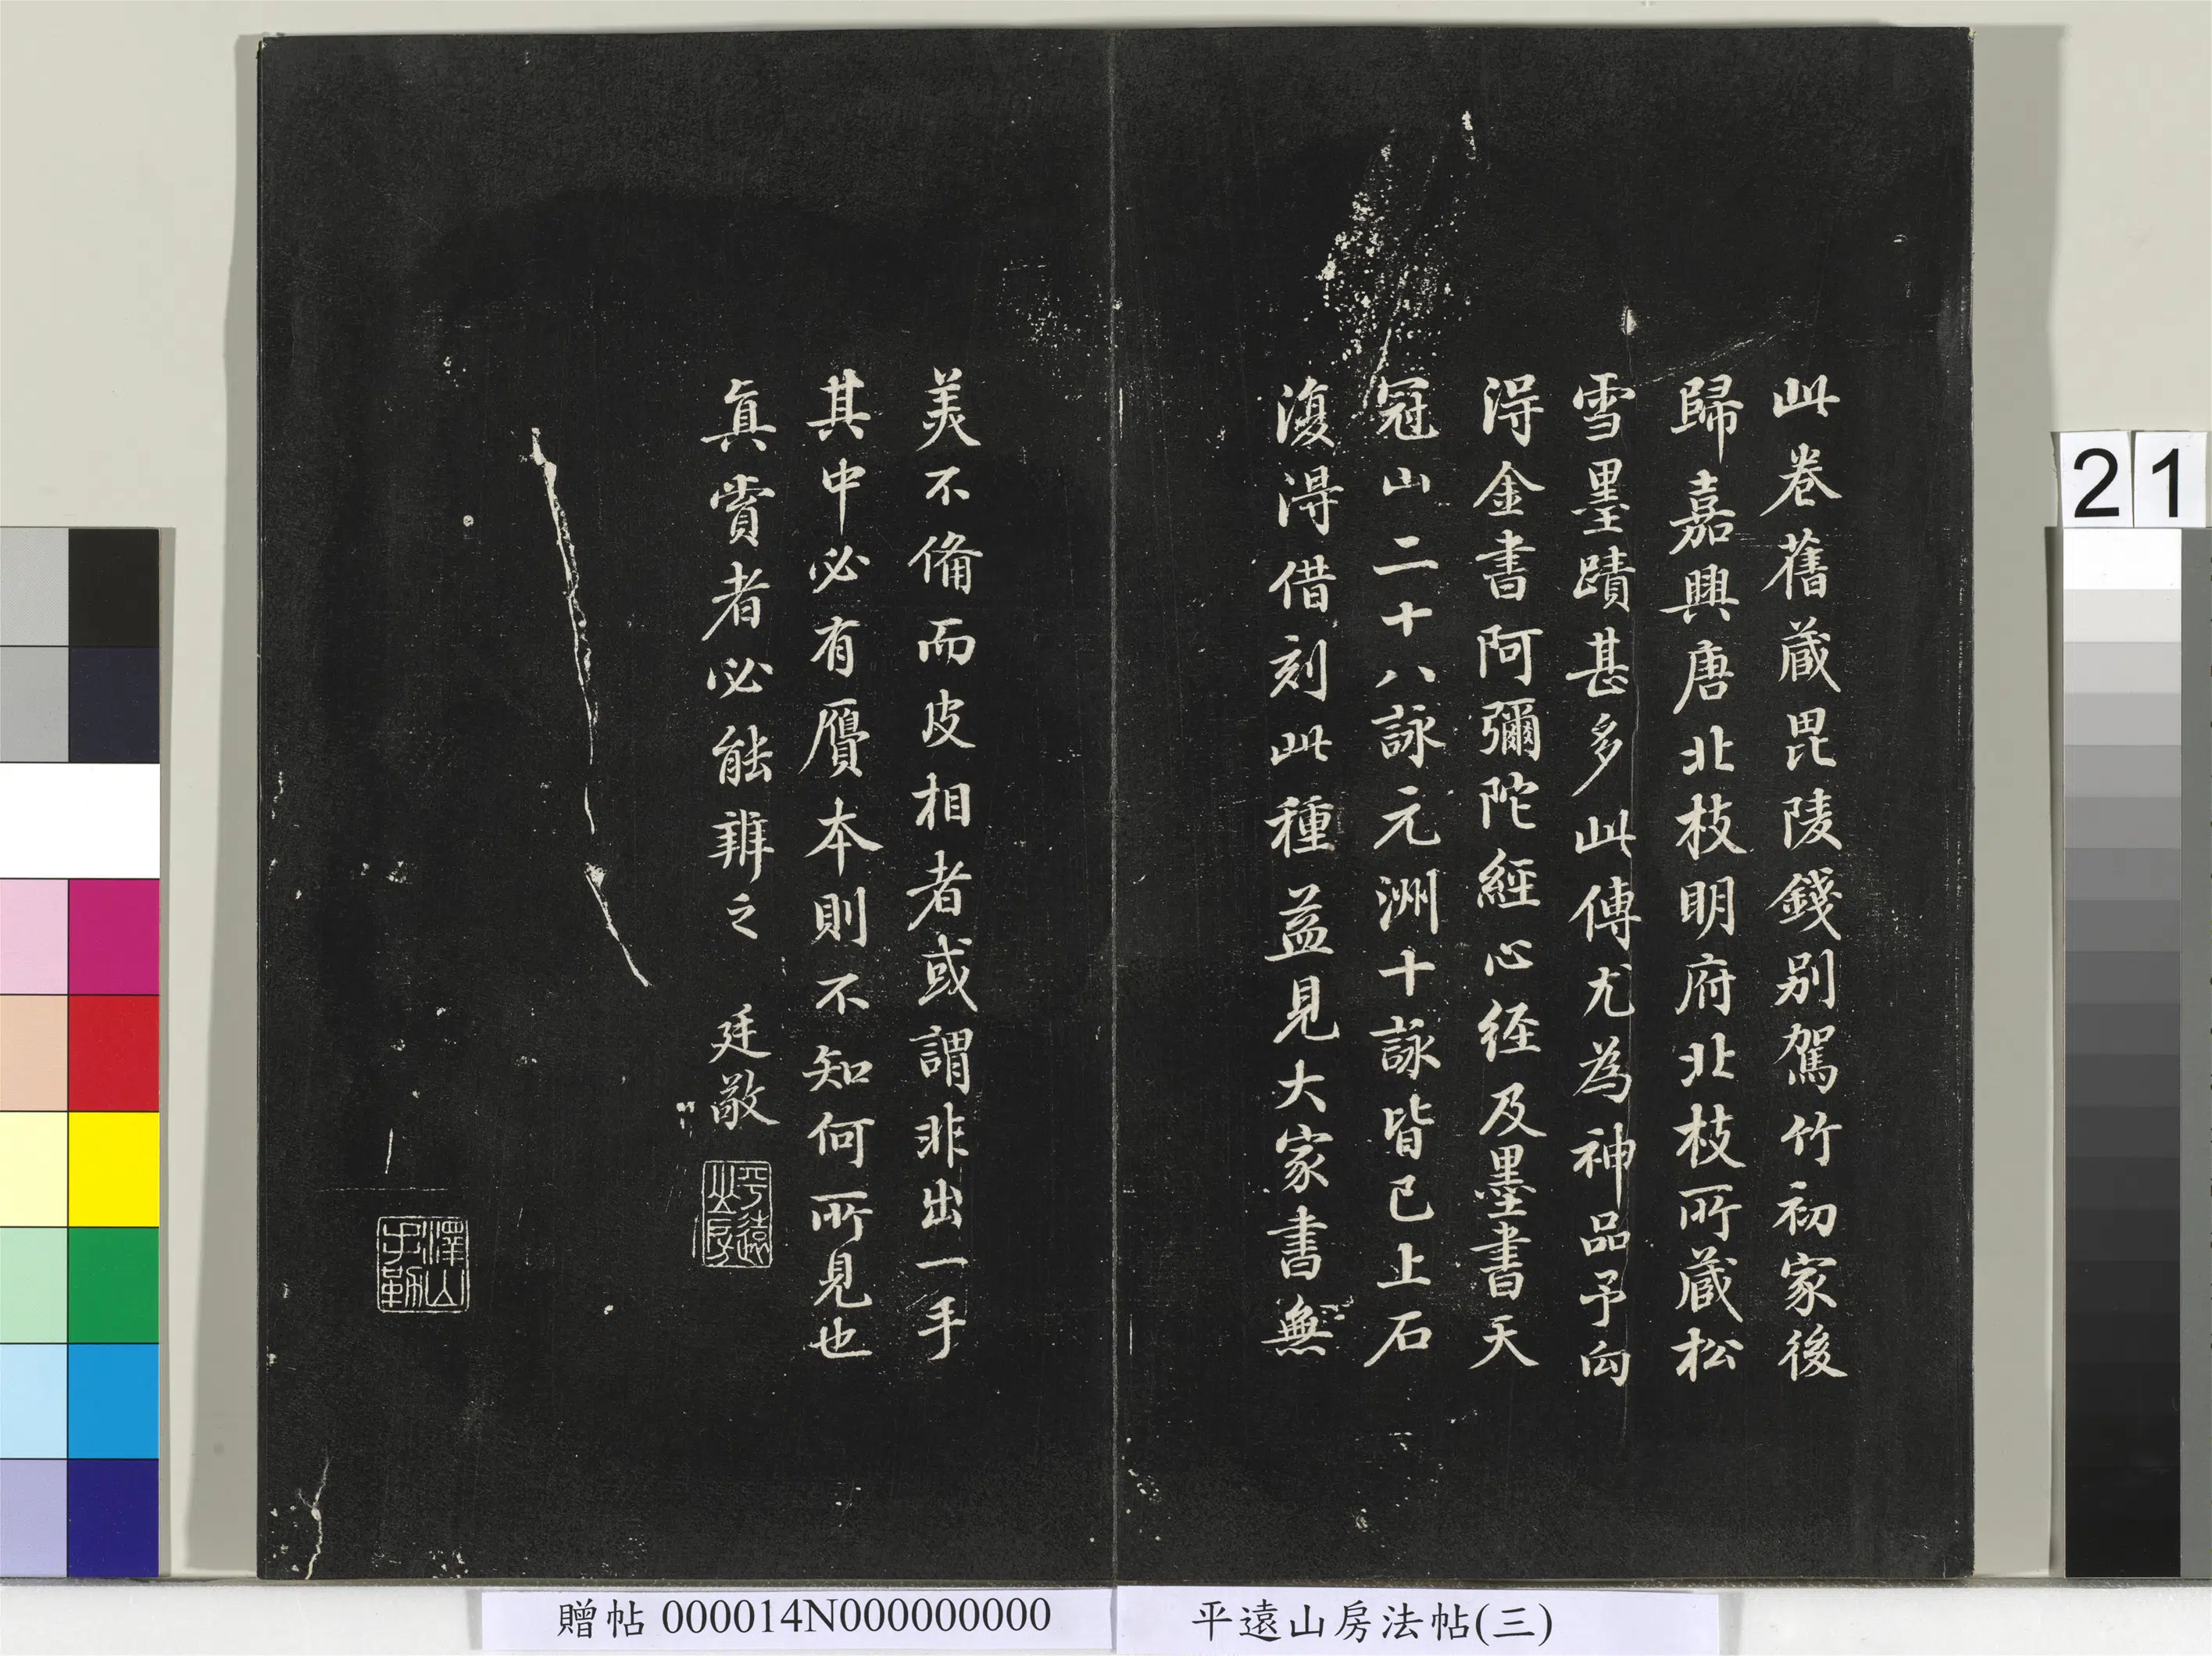 此卷舊蔵毘陵錢别駕竹初家後
歸嘉興唐北枝明府北枝所蔵松
雪墨蹟甚多此傳尤為神品予向
淂金書阿彌陀經心経及墨書天
冠山二十八詠元洲十詠皆已上石
復淂借刻此種益見大家書無
美不備而皮相者或謂非出一手
其中必有贋本則不知何所見也
真賞者必能辨之 廷敬
平遠山房
澤山手勒
21
贈帖 000014N000000000
平遠山房法帖(三)